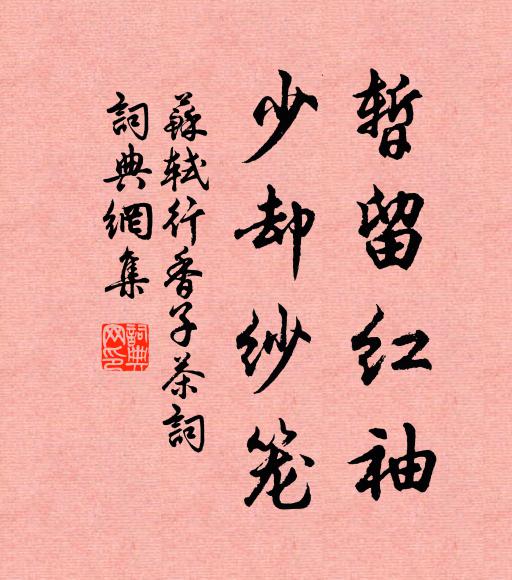 暫留紅袖
少却紗笼
蘇軾行香子茶詞
詞典網集
詞典
网印